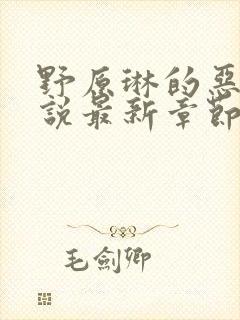 野原琳的惡
說最新章節
毛劍卿